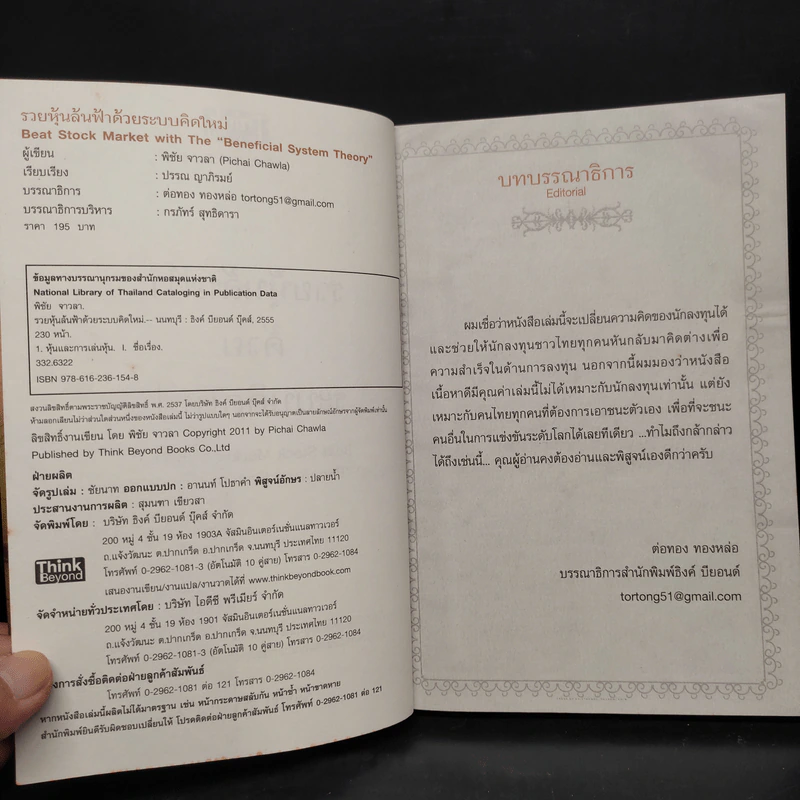 รวยหุ้นล้นฟ้าด้วยระบบคิดใหม่
Beat Stock Market with The "Beneficial System Theory"
ผู้เขียน : พิชัย จาวลา (Pichai Chawla)
เรียบเรียง : ปรรณ ญาภิรมย์
บรรณาธิการ : ต่อทอง ทองหล่อ tortong51@gmail.com
บรรณาธิการบริหาร : กรภัทร์ สุทธิดารา
ราคา 195 บาท
ข้อมูลทางบรรณานุกรมของสำนักหอสมุดแห่งชาติ
National Library of Thailand Cataloging in Publication Data
พิชัย จาวลา.
รวยหุ้นล้นฟ้าด้วยระบบคิดใหม่.-- นนทบุรี : ธิงค์ บียอนด์ บุ๊คส์, 2555
230 หน้า.
1. หุ้นและการเล่นหุ้น. I. ชื่อเรื่อง.
332.6322
ISBN 978-616-236-154-8
สงวนลิขสิทธิ์ตามพระราชบัญญัติลิขสิทธิ์ พ.ศ. 2537 โดยบริษัท ธิงค์ บียอนด์ บุ๊คส์ จำกัด
ห้ามลอกเลียนไม่ว่าส่วนใดส่วนหนึ่งของหนังสือเล่มนี้ ไม่ว่ารูปแบบใดๆ นอกจากจะได้รับอนุญาตเป็นลายลักษณ์อักษรจากผู้จัดพิมพ์เท่านั้น
ลิขสิทธิ์งานเขียน โดย พิชัย จาวลา Copyright 2011 by Pichai Chawla
Published by Think Beyond Books Co.,Ltd
ฝ่ายผลิต
จัดรูปเล่ม : ชัยนาท ออกแบบปก : อานนท์ โปธาคำ พิสูจน์อักษร : ปลายน้ำ
ประสานงานการผลิต : สุมนฑา เขียวสา
จัดพิมพ์โดย : บริษัท ธิงค์ บียอนด์ บุ๊คส์ จำกัด
200 หมู่ 4 ชั้น 19 ห้อง 1903A จัสมินอินเตอร์เนชั่นแนลทาวเวอร์
ถ.แจ้งวัฒนะ ต.ปากเกร็ด อ.ปากเกร็ด จ.นนทบุรี ประเทศไทย 11120
โทรศัพท์ 0-2962-1081-3 (อัตโนมัติ 10 คู่สาย) โทรสาร 0-2962-1084
เสนองานเขียน/งานแปล/งานวาดได้ที่ www.thinkbeyondbook.com
Think
Beyond
จัดจำหน่ายทั่วประเทศโดย : บริษัท ไอดีซี พรีเมียร์ จำกัด
200 หมู่ 4 ชั้น 19 ห้อง 1901 จัสมินอินเตอร์เนชั่นแนลทาวเวอร์
ถ.แจ้งวัฒนะ ต.ปากเกร็ด อ.ปากเกร็ด จ.นนทบุรี ประเทศไทย 11120
โทรศัพท์ 0-2962-1081-3 (อัตโนมัติ 10 คู่สาย) โทรสาร 0-2962-1084
งการสั่งซื้อติดต่อฝ่ายลูกค้าสัมพันธ์
โทรศัพท์ 0-2962-1081 ต่อ 121 โทรสาร 0-2962-1084
หากหนังสือเล่มนี้ผลิตไม่ได้มาตรฐาน เช่น หน้ากระดาษสลับกัน หน้าซ้ำ หน้าขาดหาย
สำนักพิมพ์ยินดีรับผิดชอบเปลี่ยนให้ โปรดติดต่อฝ่ายลูกค้าสัมพันธ์ โทรศัพท์ 0-2962-1081 ต่อ 121
บทบรรณาธิการ
Editorial
ผมเชื่อว่าหนังสือเล่มนี้จะเปลี่ยนความคิดของนักลงทุนได้
และช่วยให้นักลงทุนชาวไทยทุกคนหันกลับมาคิดต่างเพื่อ
ความสำเร็จในด้านการลงทุน นอกจากนี้ผมมองว่าหนังสือ
เนื้อหาดีมีคุณค่าเล่มนี้ไม่ได้เหมาะกับนักลงทุนเท่านั้น แต่ยัง
เหมาะกับคนไทยทุกคนที่ต้องการเอาชนะตัวเอง เพื่อที่จะชนะ
คนอื่นในการแข่งขันระดับโลกได้เลยทีเดียว ...ทำไมถึงกล้ากล่าว
ได้ถึงเช่นนี้... คุณผู้อ่านคงต้องอ่านและพิสูจน์เองดีกว่าครับ
ต่อทอง ทองหล่อ
บรรณาธิการสำนักพิมพ์ธิงค์ บียอนด์
tortong51@gmail.com